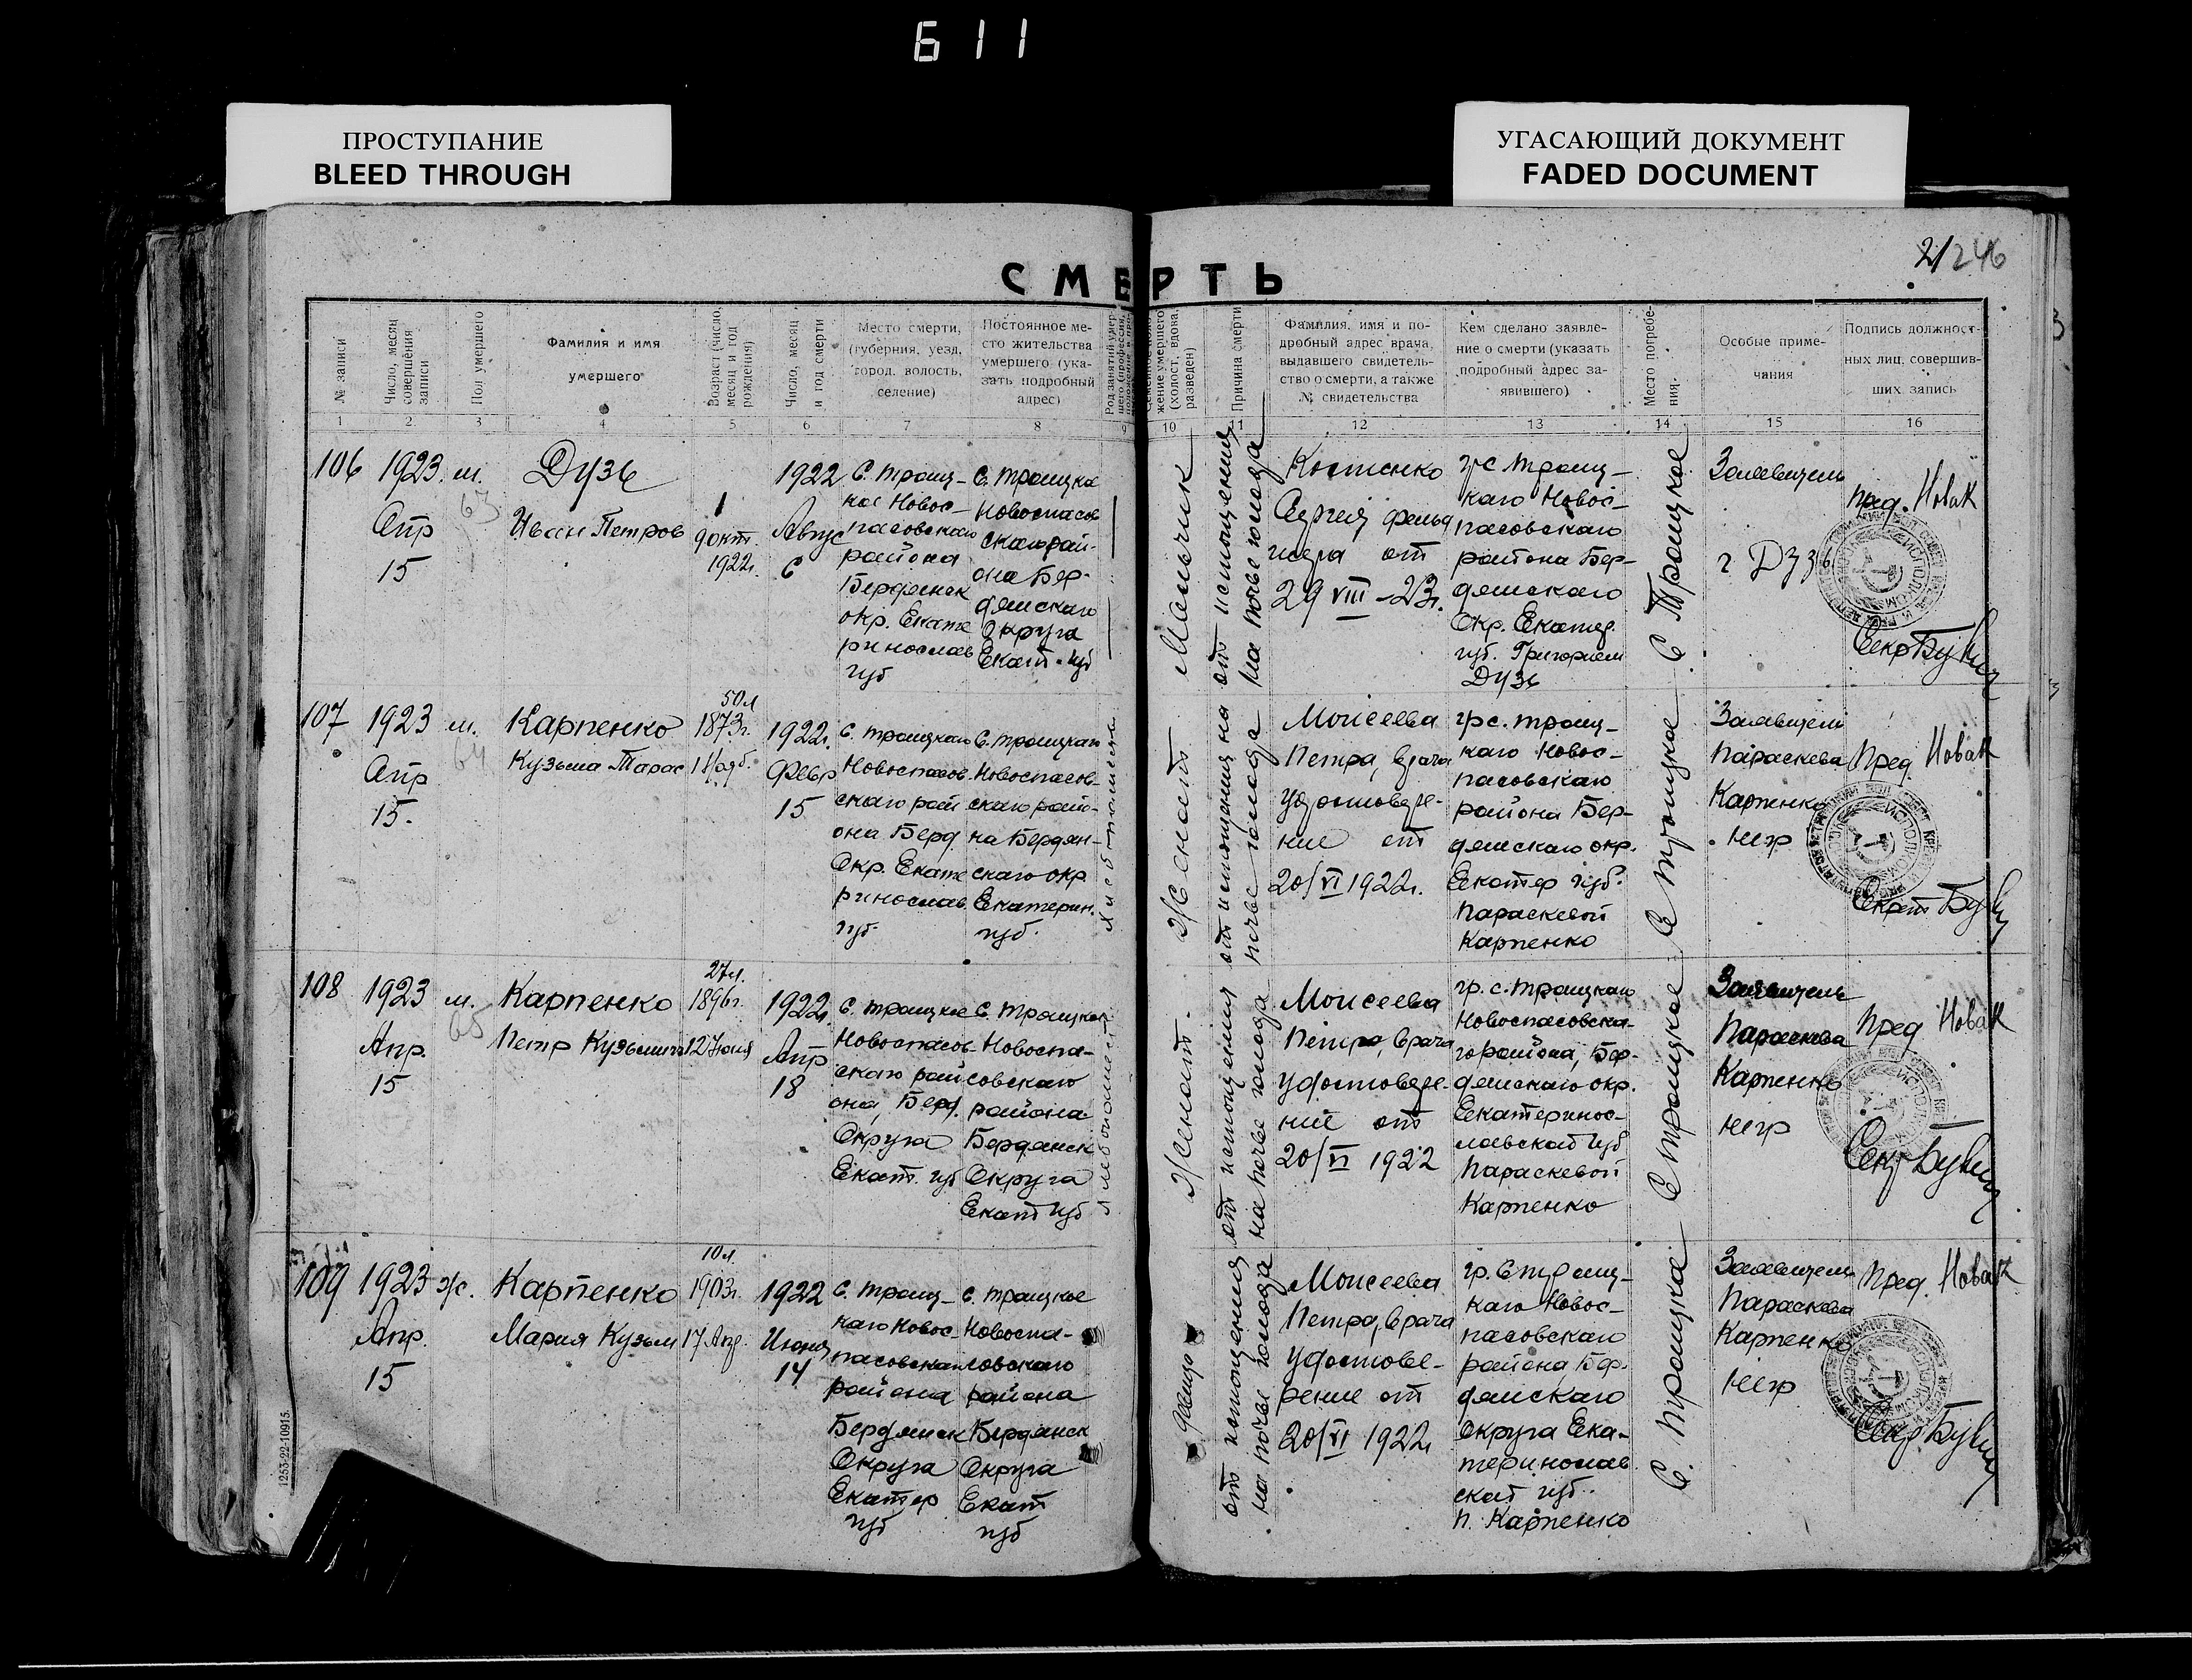 611
ПРОСТУПАНИЕ
BLEED THROUGH
УГАСАЮЩИЙ ДОКУМЕНТ
FADED DOCUMENT
21 246
СМЕРТЬ
№ записи
Число, месяц
совершения
записи
Пол умершего
Фамилия и имя
умершего
Возраст (число,
месяц и год
рождения)
Число, месяц
и год смерти
Место смерти,
(губерния, уезд,
город, волость,
селение)
Постоянное ме-
сто жительства
умершего (ука-
зать подробный
адрес)
жение умершего
(холост, вдова,
разведен)
Причина смерти
Фамилия, имя и по-
дробный адрес врача,
выдавшего свидетель-
ство о смерти, а также
№ свидетельства
Кем сделано заявле-
ние о смерти (указать
подробный адрес за-
явившего)
Место погребе-
ния.
Особые приме-
чания
Подпись должност-
ных лиц, совершив-
ших запись
1 2 3 4 5 6 7 8 9 10 11 12 13 14 15 16
106
1923
Апр
15
м.
63
Дузь
Иван Петров
1
9 окт.
1922г.
1922
Август
6
С. Троиц-
кое Новос-
пасовскаго
района
Бердянск
окр. Екате
ринослав
губ
С. Троицкое
Новоспасов
скаго рай-
она Бер-
дянскаго
Округа
Екат. губ
Мальчик
от истощения на
на почве голода
Костенко
Сергей фельд
шера от
29 VIII - 23г.
гр с Троиц-
каго Новос-
пасовскаго
района Бер-
дянскаго
Окр. Екатер.
губ. Григорием
Дузь
С Троицкое
Заявитель
г Дузь
Пред. Новак
Секр
107
1923
Апр
15.
м.
64
Карпенко
Кузьма Тарас
50 л
1873г.
1 Нояб.
1922г.
Февр
15
С. Троицкаго
Новоспасов-
скаго рай
она Берд.
Окр. Екате
ринослав.
губ.
С. Троицкаго
Новоспасов-
скаго райо-
на Бердян-
скаго окр.
Екатерин.
губ.
Хлебопашец
Женат.
от истощения на
почве голода
Моисеева
Петра, врача
удостовере-
ние от
20/VI 1922г.
гр с. Троиц-
каго Новос-
пасовскаго
района Бер-
дянскаго окр.
Екатер губ.
Параскевой
Карпенко
С Троицкое
Заявитель
Параскева
Карпенко
негр
Пред. Новак
Секрет
108
1923
Апр.
15
м.
65
Карпенко
Петр Кузьмич
27 л.
1896г.
12 Июня
1922г.
Апр
18
С. Троицкое
Новоспасов-
скаго рай
она, Берд.
Округа
Екат. губ
С. Троицкое
Новоспа-
совскаго
района
Бердянск
Округа
Екат губ
Хлебопашест
Женат.
от истощения
на почве голода
Моисеева
Петра, врача
удостовере-
ние от
20/VI 1922
гр. с. Троицкаго
Новоспасовска-
го района, Бер-
дянскаго окр.
Екатеринос-
лавской губ
Параскевой
Карпенко
С Троицкое
Заявитель
Параскева
Карпенко
негр
Пред Новак
Секр
109
1923
Апр.
15
ж.
Карпенко
Мария Кузьм
10 л.
1903г.
17 Апр.
1922
Июня
14
С. Троиц-
каго Новос-
пасовскаго
района
Бердянск
Округа
Екатер
губ
С. Троицкое
Новоспа-
совскаго
района
Бердянск
Округа
Екат
губ
девица
от истощения
на почве голода
Моисеева
Петра, врача
удостове-
рение от
20/VI 1922г
гр. С Троиц-
каго Новос-
пасовскаго
района Бер-
дянскаго
округа Ека-
теринослав
ской губ.
П. Карпенко
С. Троицкое
Заявитель
Параскева
Карпенко
негр
Пред. Новак
Секр.
1253-22-10915.